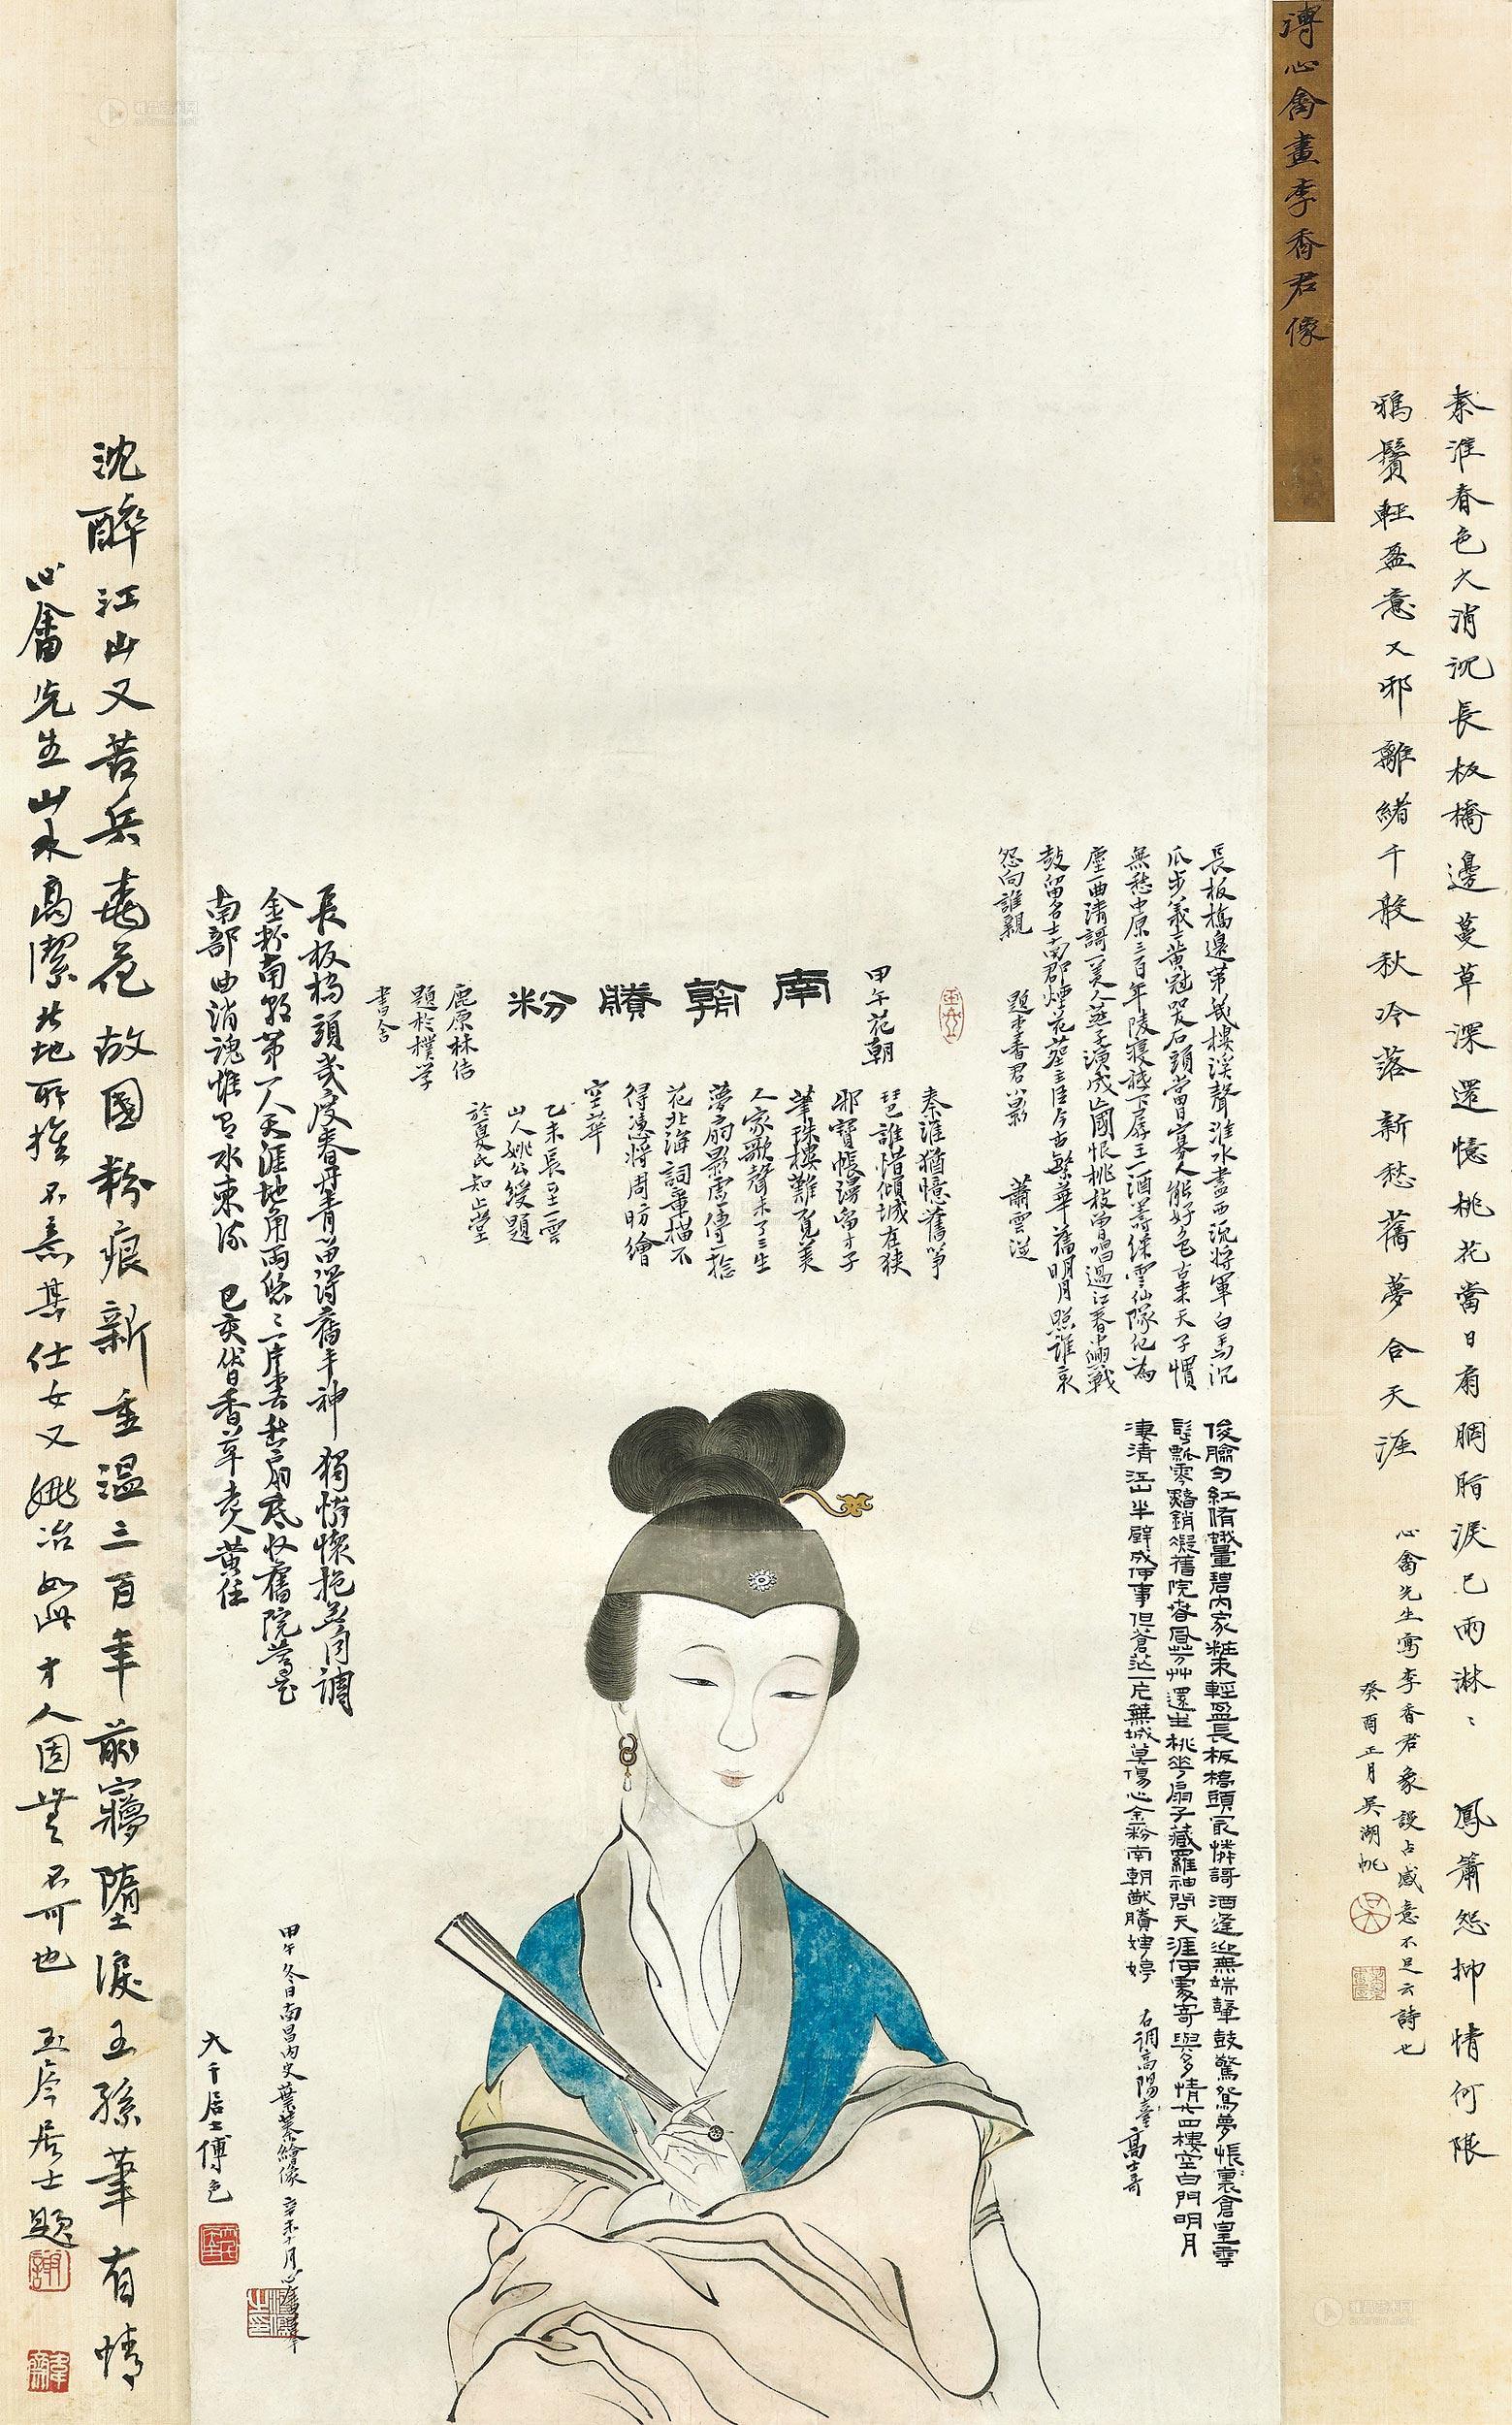 溥心畬畫李香君像
秦淮春色久消沉長板橋邊蔓草深還憶桃花當日扇胭脂淚已雨淋ミ鳳簫怨抑情何限
鴉鬢輕盈意又邪離緒千般秋冷落新愁舊夢合天涯
心畬先生寫李香君象謾占感意不足云詩也
癸酉正月吳湖帆
長板橋邊第幾樓溪聲淮水盡西流將軍白馬沉
瓜步義士黃冠哭石頭當日寡人能好色古來天子慣
無愁中原三百年陵寢
塵一曲清謌一美人燕子演成亡國恨桃枝曾唱過江春
鼓留名士南部煙花
今古繁華舊明月照誰哀
怨向誰親
題李香君小影
蕭雲從
俊臉勻紅脩蛾暈碧內家粧束輕盈長板橋頭最憐謌酒逢迎無端鼙鼓驚鴛夢悵裏倉皇
飄零黯銷凝舊院春風芳艸還生桃花扇子藏羅袖問天涯何處寄與多情廿四樓空白門明月
淒清江山半壁成何事但蒼茫一片蕪城莫傷心金粉南朝猷賸娉婷
右調高陽臺高士奇
甲午花朝
南朝賸粉
鹿原林佶
題於樸學
書舍
秦淮猶憶舊箏
琶誰惜傾城在狹
邪寶帳湯留才子
筆珠樓難覓美
人家歌聲未了三生
夢扇影虛傳一捻
花北海詞章描不
得憑將周昉繪
空華
乙未長至雲
山人姚公綬題
於夏氏知止堂
長板橋頭幾度春丹青留得舊丰神獨憐懷抱無同調
金粉南朝第一人天涯地角兩悠ミ一片
扇底收舊院鶯花
南部曲消魂惟有水東流
己亥
香草老人黃任
甲午冬日南昌內史葉蓁繪像
辛未十月心畬
大千居士傅色
沈醉江山又苦兵桃花故國粉痕新重溫三百年前寢墮淚王孫筆有情
心畬先生山水高潔北地所推不意其仕女又姚冶如此才人固無不可也
玉岑居士題